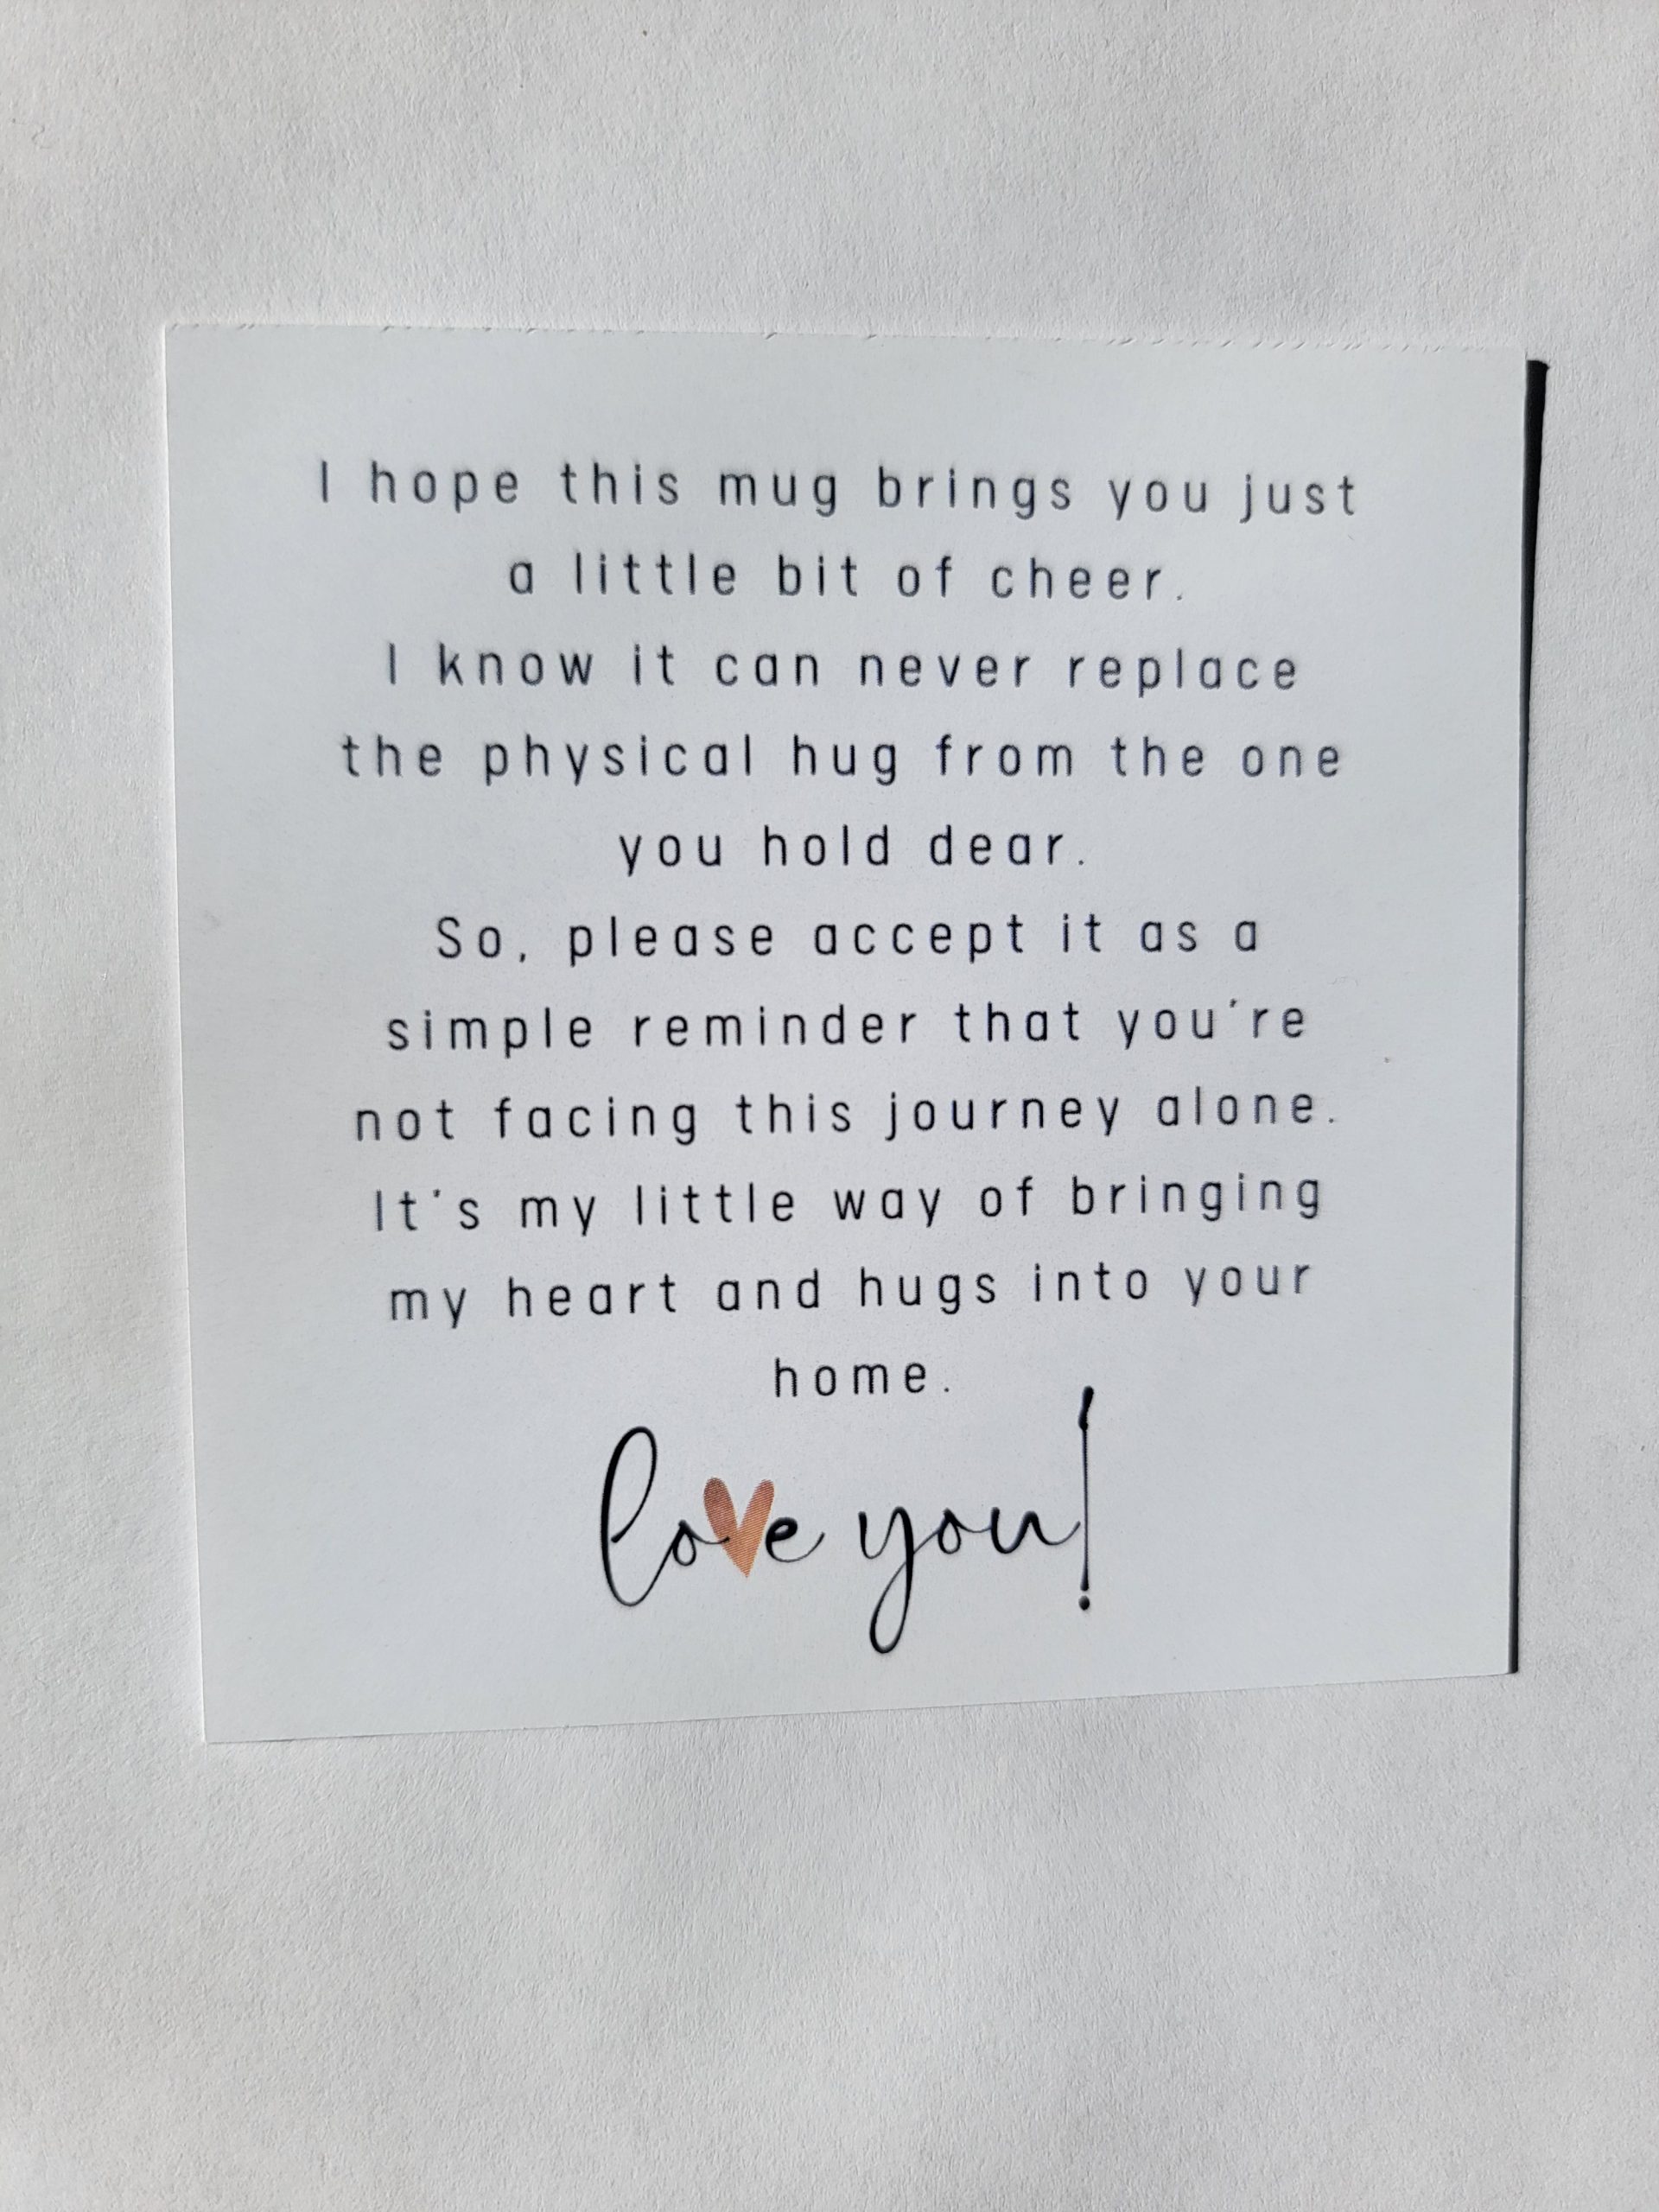 I hope this mug brings you just
a little bit of cheer.
I know it can never replace
the physical hug from the one
you hold dear.
So, please accept it as a
simple reminder that you're
not facing this journey alone.
It's my little way of bringing
my heart and hugs into your
home.
love you!